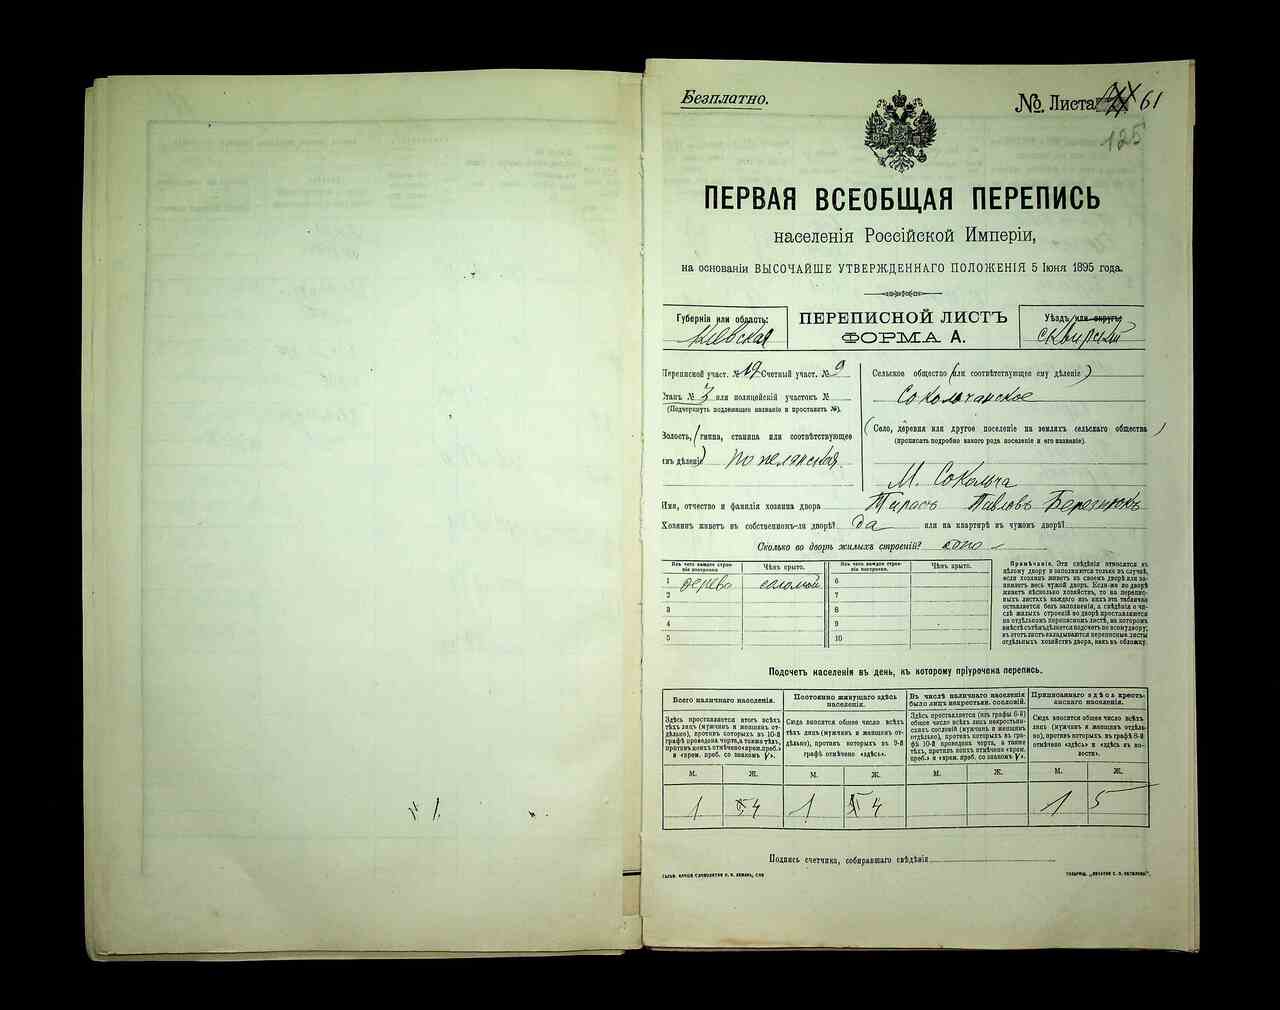 Безплатно.
№. Листа 61
125
ПЕРВАЯ ВСЕОБЩАЯ ПЕРЕПИСЬ
населенія Россійской Имперіи,
на основаніи ВЫСОЧАЙШЕ УТВЕРЖДЕННАГО ПОЛОЖЕНІЯ 5 Іюня 1895 года.
Губернія или область:
Кіевская
ПЕРЕПИСНОЙ ЛИСТЪ
ФОРМА А.
Уѣздъ или округъ:
Сквирскій
Переписной участ. № 19 Счетный участ. № 9
Станъ № 3 или полицейскій участокъ №
(Подчеркнуть подлежащее названіе и проставить №).
Волость, (гмина, станица или соотвѣтствующее
имъ дѣленіе)
Сельское общество (или соотвѣтствующее ему дѣленіе)
Соколчанское
(Село, деревня или другое поселеніе на земляхъ сельскаго общества)
(прописать подробно какого рода поселеніе и его названіе).
М. Соколча
Имя, отчество и фамилія хозяина двора Тарасъ Павловъ Березюкъ
Хозяинъ живетъ въ собственномъ-ли дворѣ? да или на квартирѣ въ чужомъ дворѣ?
Сколько во дворѣ жилыхъ строеній? одно
Изъ чего каждое строеніе построено.
Чѣмъ крыто.
Изъ чего каждое строеніе построено.
Чѣмъ крыто.
1 дерево соломой 6
2 7
3 8
4 9
5 10
Примѣчаніе. Эти свѣдѣнія относятся къ
цѣлому двору и заполняются только въ случаѣ,
если хозяинъ живетъ въ своемъ дворѣ или занимаетъ
весь чужой дворъ. Если-же во дворѣ
живетъ нѣсколько хозяйствъ, то на переписныхъ
листахъ каждаго изъ нихъ эта табличка
оставляется безъ заполненія, а свѣдѣнія о числѣ
жилыхъ строеній во дворѣ проставляются
на отдѣльномъ переписномъ листѣ, на которомъ
вмѣстѣ съ тѣмъ дѣлается подсчетъ по всему двору;
въ этотъ листъ вкладываются переписные листы
отдѣльныхъ хозяйствъ двора, какъ въ обложку.
Подсчетъ населенія въ день, къ которому пріурочена перепись.
Всего наличнаго населенія.
Здѣсь проставляется итогъ всѣхъ
тѣхъ лицъ (мужчинъ и женщинъ отдѣльно),
противъ которыхъ въ 10-й
графѣ проведена черта, а также тѣхъ,
противъ коихъ отмѣчено «врем. преб.»
и «врем. преб. со знакомъ V».
Постоянно живущаго здѣсь
населенія.
Сюда вносится общее число всѣхъ
тѣхъ лицъ (мужчинъ и женщинъ отдѣльно),
противъ которыхъ въ 9-й
графѣ отмѣчено «здѣсь».
Въ числѣ наличнаго населенія
было лицъ некрестьян. сословій.
Здѣсь проставляется (изъ графы 6-й)
общее число всѣхъ лицъ некрестьянскихъ
сословій (мужчинъ и женщинъ
отдѣльно), противъ которыхъ въ графѣ
10-й проведена черта, а также
тѣхъ, противъ коихъ отмѣчено «врем.
преб.» и «врем. преб. со знакомъ V».
Приписаннаго здѣсь крестьянскаго
населенія.
Сюда вносится общее число всѣхъ
лицъ (мужчинъ и женщинъ отдѣльно),
противъ которыхъ въ графѣ 8-й
отмѣчено «здѣсь» и «здѣсь въ волости».
М. Ж. М. Ж. М. Ж. М. Ж.
1 4 1 4 1 5
Подпись счетчика, собиравшаго свѣдѣнія